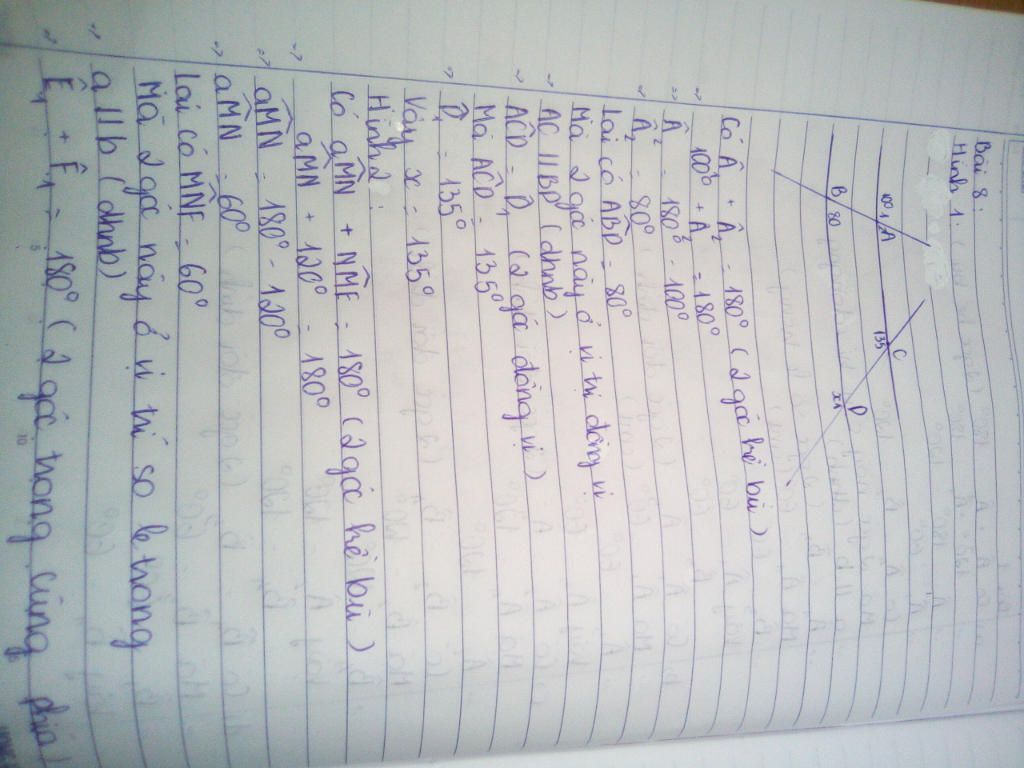 Bài 8:
Hình 1:
100° 1 A
135 C
B 80
D
x 1
Có Â₁ + Â₂ = 180° (2 góc kề bù)
=> 100° + Â₂ = 180°
=> Â₂ = 180° - 100°
=> Â₂ = 80°
Lại có ABD = 80°
Mà 2 góc này ở vị trí đồng vị
=> AC // BD (dhnb)
=> ACD = D₁ (2 góc đồng vị)
Mà ACD = 135°
=> D₁ = 135°
Vậy x = 135°
Hình 2:
Có aMN + NME = 180° (2 góc kề bù)
=> aMN + 120° = 180°
=> aMN = 180° - 120°
=> aMN = 60°
Lại có MNF = 60°
Mà 2 góc này ở vị trí so le trong
=> a // b (dhnb)
=> Ê₁ + = 180° (2 góc trong cùng phía)